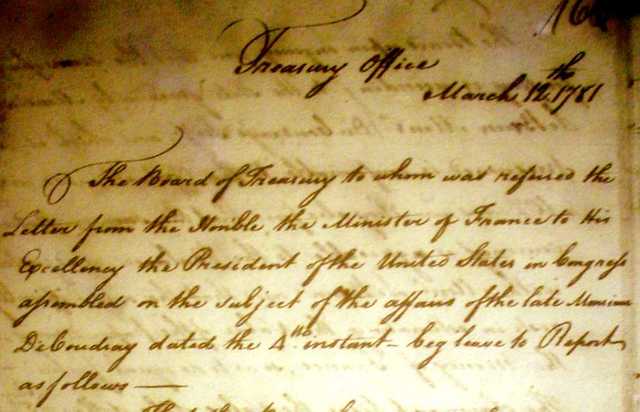 Treasury Office
March 12th 1781
The Board of Treasury to whom was referred the
Letter from the Honble the Minister of France to His
Excellency the President of the United States in Congress
assembled on the subject of the affairs of the late Monsieur
DeCoudray dated the 4th instant - beg leave to Report
as follows —